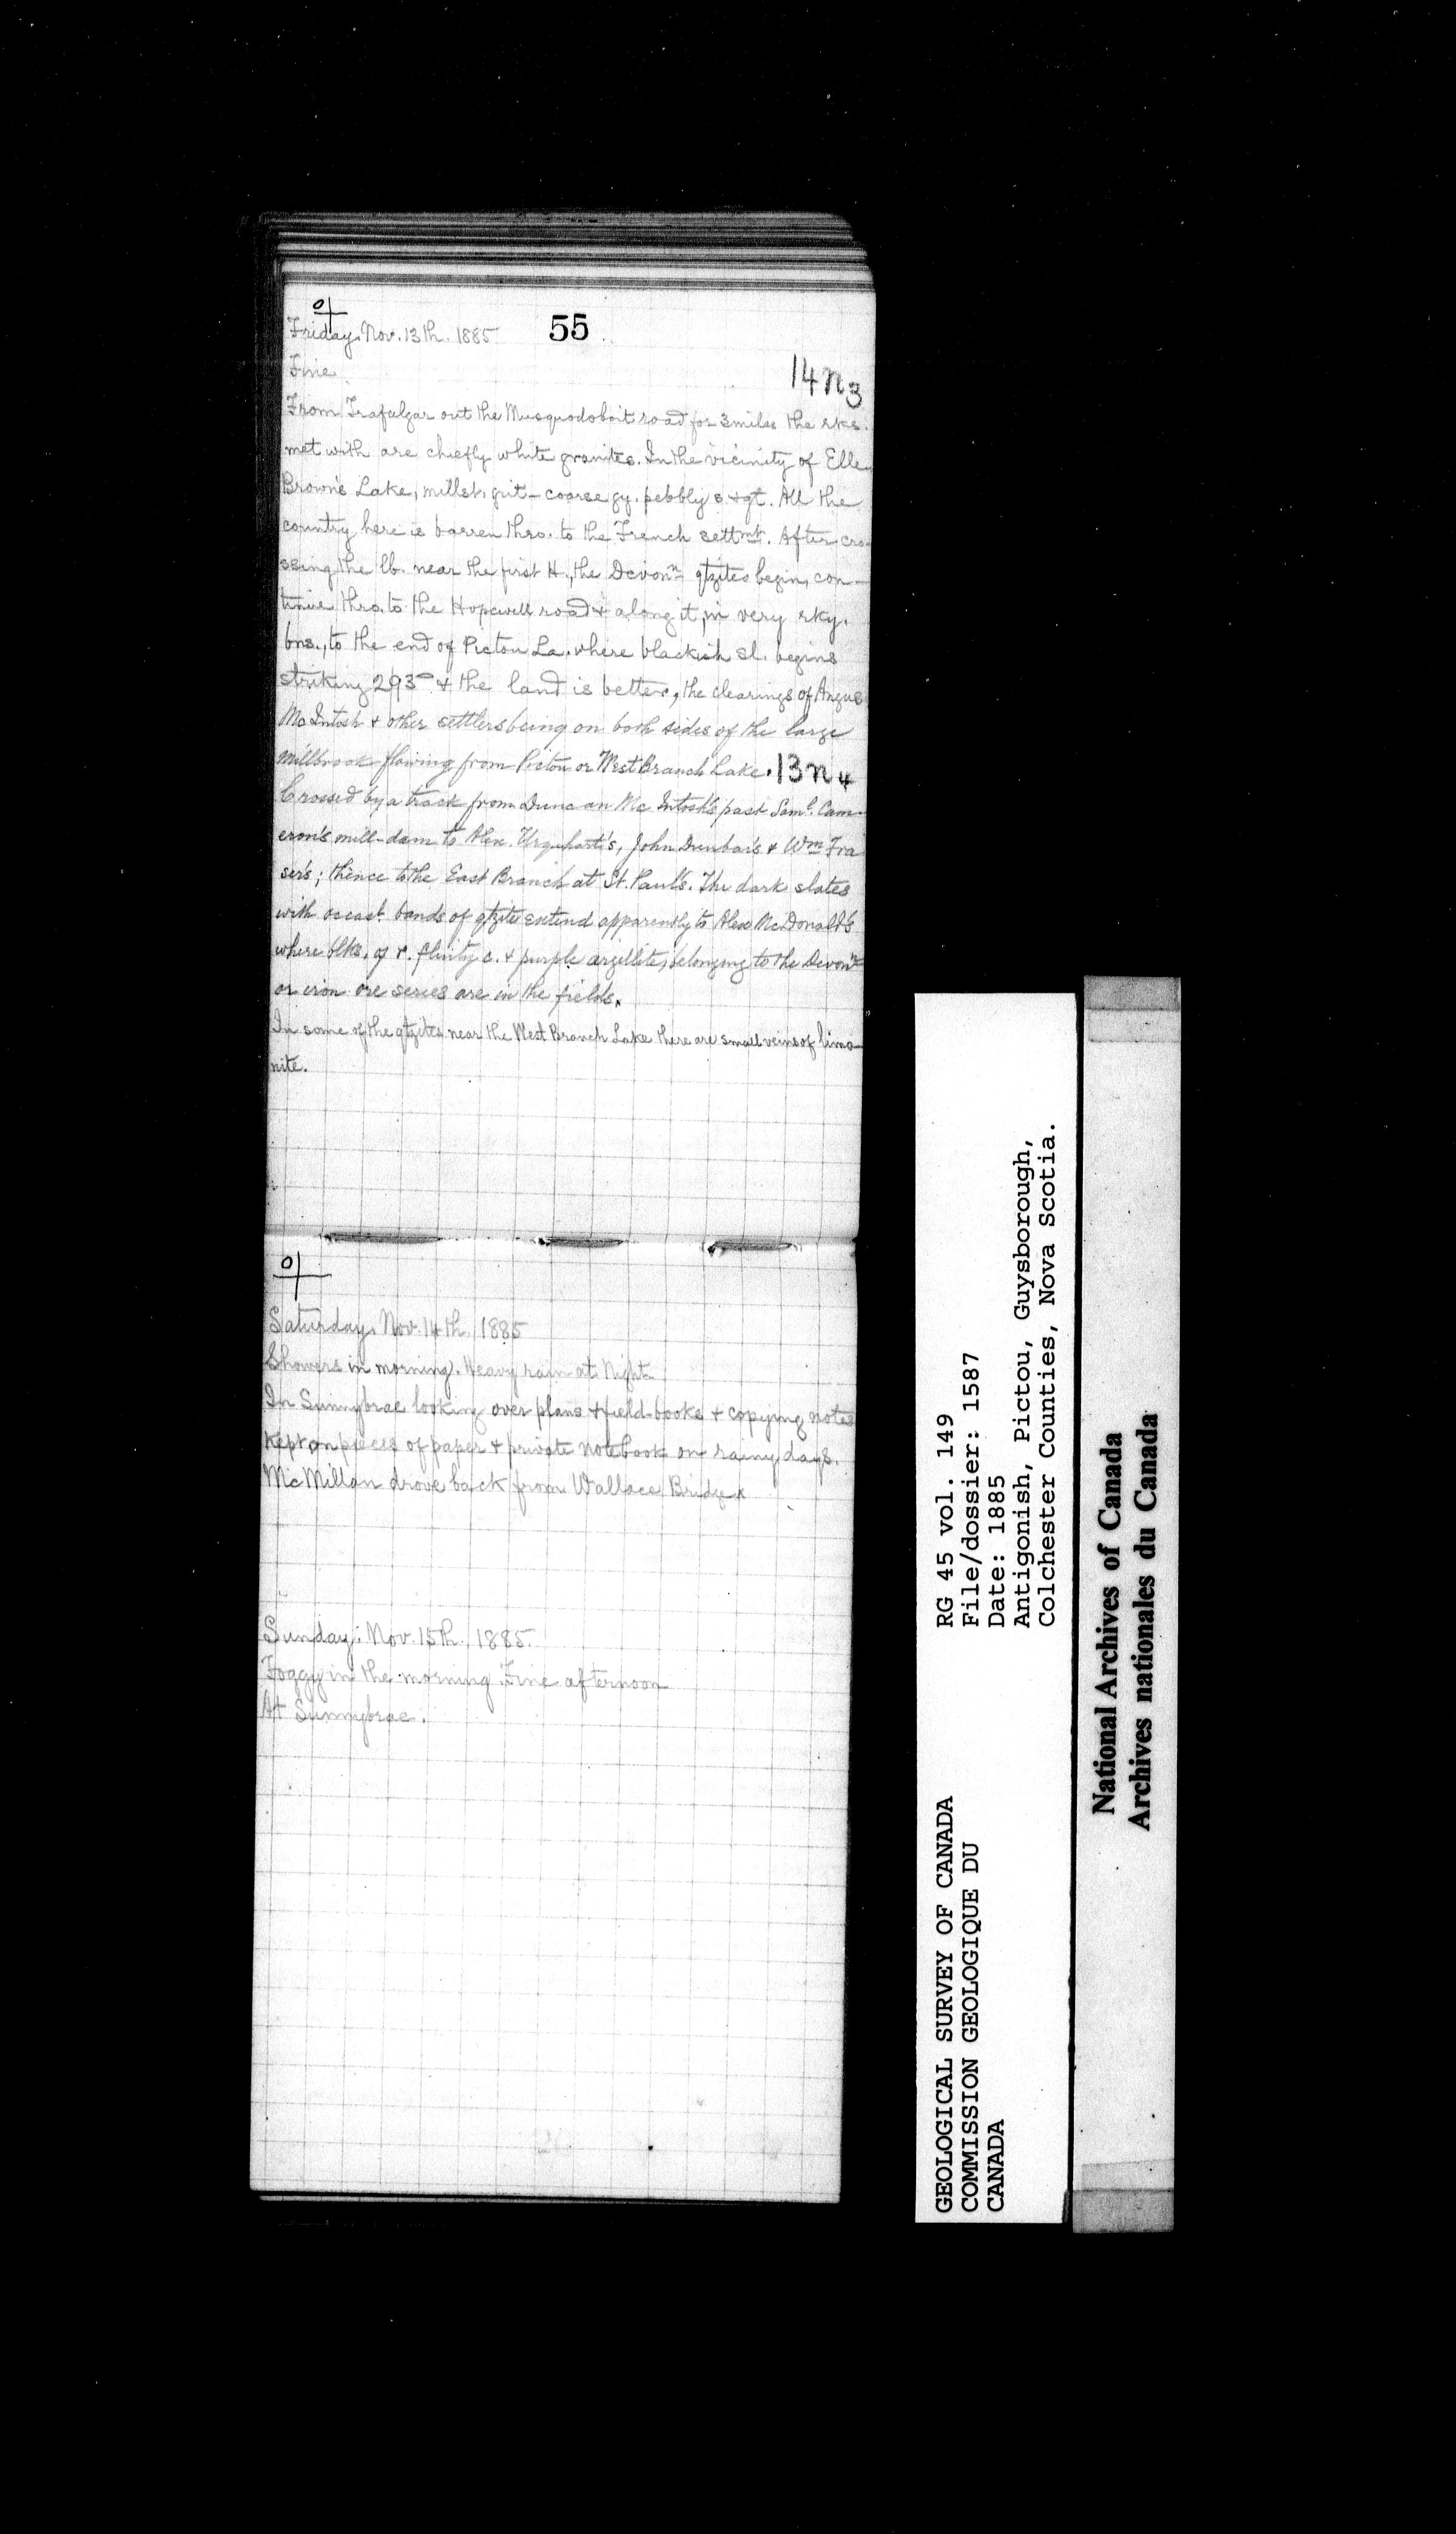 Friday, Nov. 13th. 1885
55
Fine.
14 n 3
From Trafalgar out the Musquodoboit road for 3 miles the rks.
met with are chiefly white granites. In the vicinity of Ellen
Brown's Lake, millst. grit - coarse gy. pebbly s. & gt. All the
country here is barren thro. to the French settmt. After cro-
ssing the lb. near the first H., the Devonn qtzites begin, con-
tinue thro. to the Hopewell road & along it, in very rky.
bns., to the end of Pictou La. where blackish sl. begins
striking 293° & the land is better, the clearings of Angus
McIntosh & other settlers being on both sides of the large
millbrook flowing from Pictou or West Branch Lake. 13 n 4
Crossed by a track from Duncan McIntosh's past Saml. Cam-
eron's mill-dam to Alex. Urquhart's, John Dunbar's & Wm Fra
ser's; thence to the East Branch at St. Paul's. The dark slates
with occasl. bands of qtzite extend apparently to Alex McDonald's
where blks. of r. flinty s. & purple argillite, belonging to the Devonn
or iron ore series are in the fields.
In some of the qtzites near the West Branch Lake there are small veins of limo-
nite.
Saturday, Nov. 14th. 1885
Showers in morning. Heavy rain at Night
In Sunnybrae looking over plans & field-books & copying notes
kept on pieces of paper & private notebook on rainy days.
McMillan drove back from Wallace Bridge
Sunday: Nov. 15th. 1885.
Foggy in the morning. Fine afternoon
At Sunnybrae.
GEOLOGICAL SURVEY OF CANADA
COMMISSION GEOLOGIQUE DU
CANADA
RG 45 vol. 149
File/dossier: 1587
Date: 1885
Antigonish, Pictou, Guysborough,
Colchester Counties, Nova Scotia.
National Archives of Canada
Archives nationales du Canada